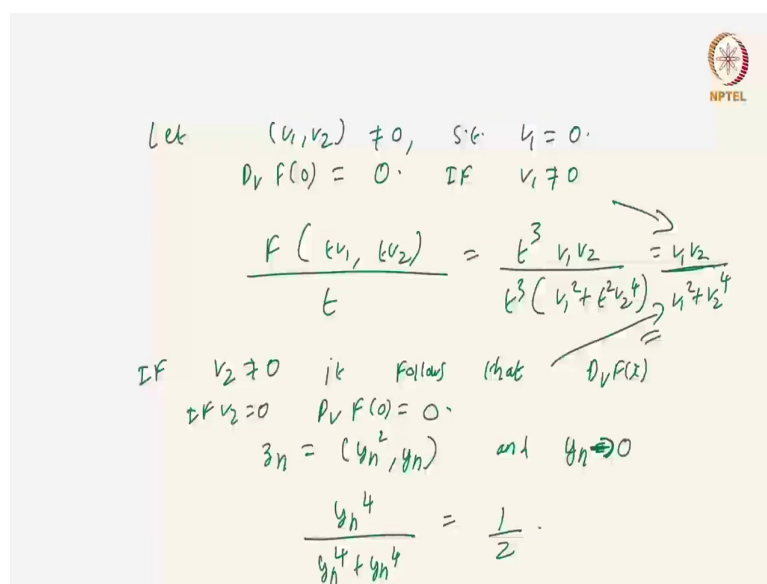 NPTEL
Let (v₁, v₂) ≠ 0, s.t. v₁ = 0.
D_v F(0) = 0. IF v₁ ≠ 0
F(tv₁, tv₂) / t = t³ v₁v₂ / t³(v₁² + t²v₂⁴) = v₁v₂ / v₁² + v₂⁴
IF v₂ ≠ 0 it follows that D_v F(x)
IF v₂ = 0 D_v F(0) = 0.
z_n = (y_n², y_n) and y_n → 0
y_n⁴ / y_n⁴ + y_n⁴ = 1/2.